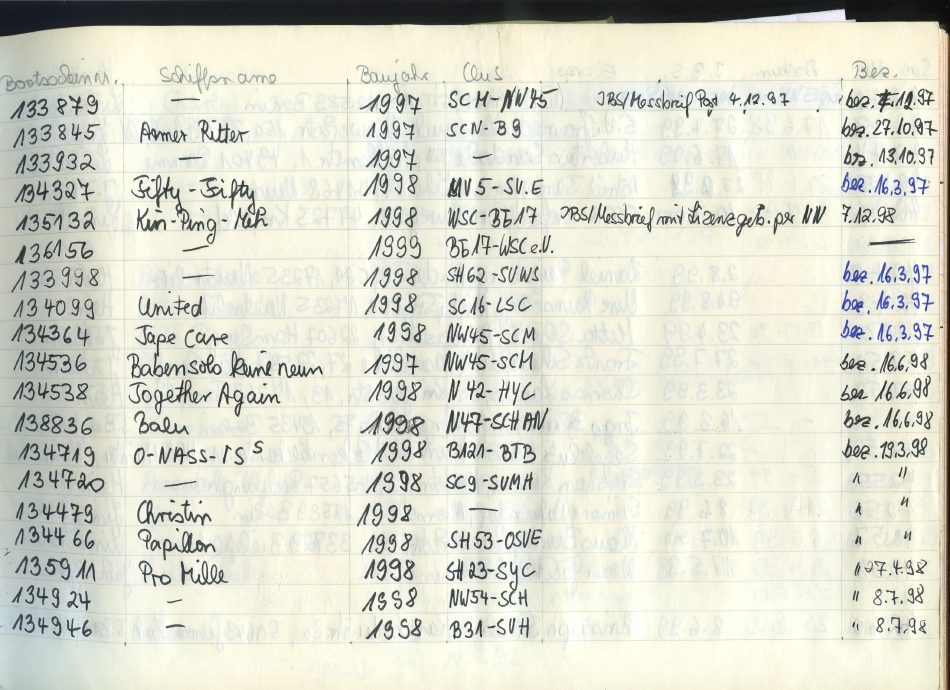 Bootsscheinnr. Schiffsname Baujahr Club Bez.
133879 1997 SCM-NW45 IBS/Messbrief Post 4.12.97 bez. 12.97
133845 Armer Ritter 1997 SCN-B9 bez. 27.10.97
133932 1997 — bez. 13.10.97
134327 Fifty-Fifty 1998 MV5-SV.E bez. 16.3.97
135132 1998 WSC-BE17 IBS/Messbrief mit Lizenzgeb. per NN 7.12.98
136156 — 1999 BE17-WSC e.V. —
133998 1998 SH62-SVWS bez. 16.3.97
134099 United 1998 SC16-LSC bez. 16.3.97
134364 Tape Care 1998 NW45-SCM bez. 16.3.97
134536 Babensolo keine neun 1997 NW45-SCM bez. 16.6.98
134538 Together Again 1998 N42-HYC bez. 16.6.98
138836 Balu 1998 N47-SCHAN bez. 16.6.98
134719 O-NASS-IS S 1998 B121-BTB bez. 19.3.98
134720 — 1998 SC9-SVMH " "
134479 Christin 1998 — " "
134466 Papillon 1998 SH53-OSVE " "
135911 Pro Mille 1998 SH23-SyC " 27.4.98
134924 — 1998 NW54-SCH " 8.7.98
134946 — 1998 B31-SVH " 8.7.98